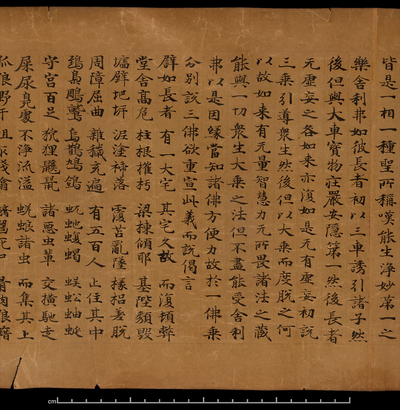 皆是一相一種聖所稱嘆能生淨妙第一之
樂舍利弗如彼長者初以三車誘引諸子然
後但與大車寶物莊嚴安隱第一然彼長者
无虛妄之咎如來亦復如是无有虛妄初說
三乘引導衆生然後但以大乘而度脫之何
以故如來有无量智慧力无所畏諸法之藏
能與一切衆生大乘之法但不盡能受舍利
弗以是因緣當知諸佛方便力故於一佛乘
分別說三佛欲重宣此義而說偈言
譬如長者 有一大宅 其宅久故 而復頓弊
堂舍高危 柱根摧朽 梁棟傾邪 基陛頹毀
墻壁圮坼 泥塗阤落 覆苫亂墜 椽梠差脫
周障屈曲 雜穢充遍 有五百人 止住其中
鵄梟鵰鷲 烏鵲鳩鴿 蚖蛇蝮蝎 蜈蚣蚰蜒
守宮百足 狖狸鼷鼠 諸惡虫輩 交橫馳走
屎尿臭處 不淨流溢 蜣蜋諸虫 而集其上
狐狼野干 咀 踐 死 骨肉狼藉